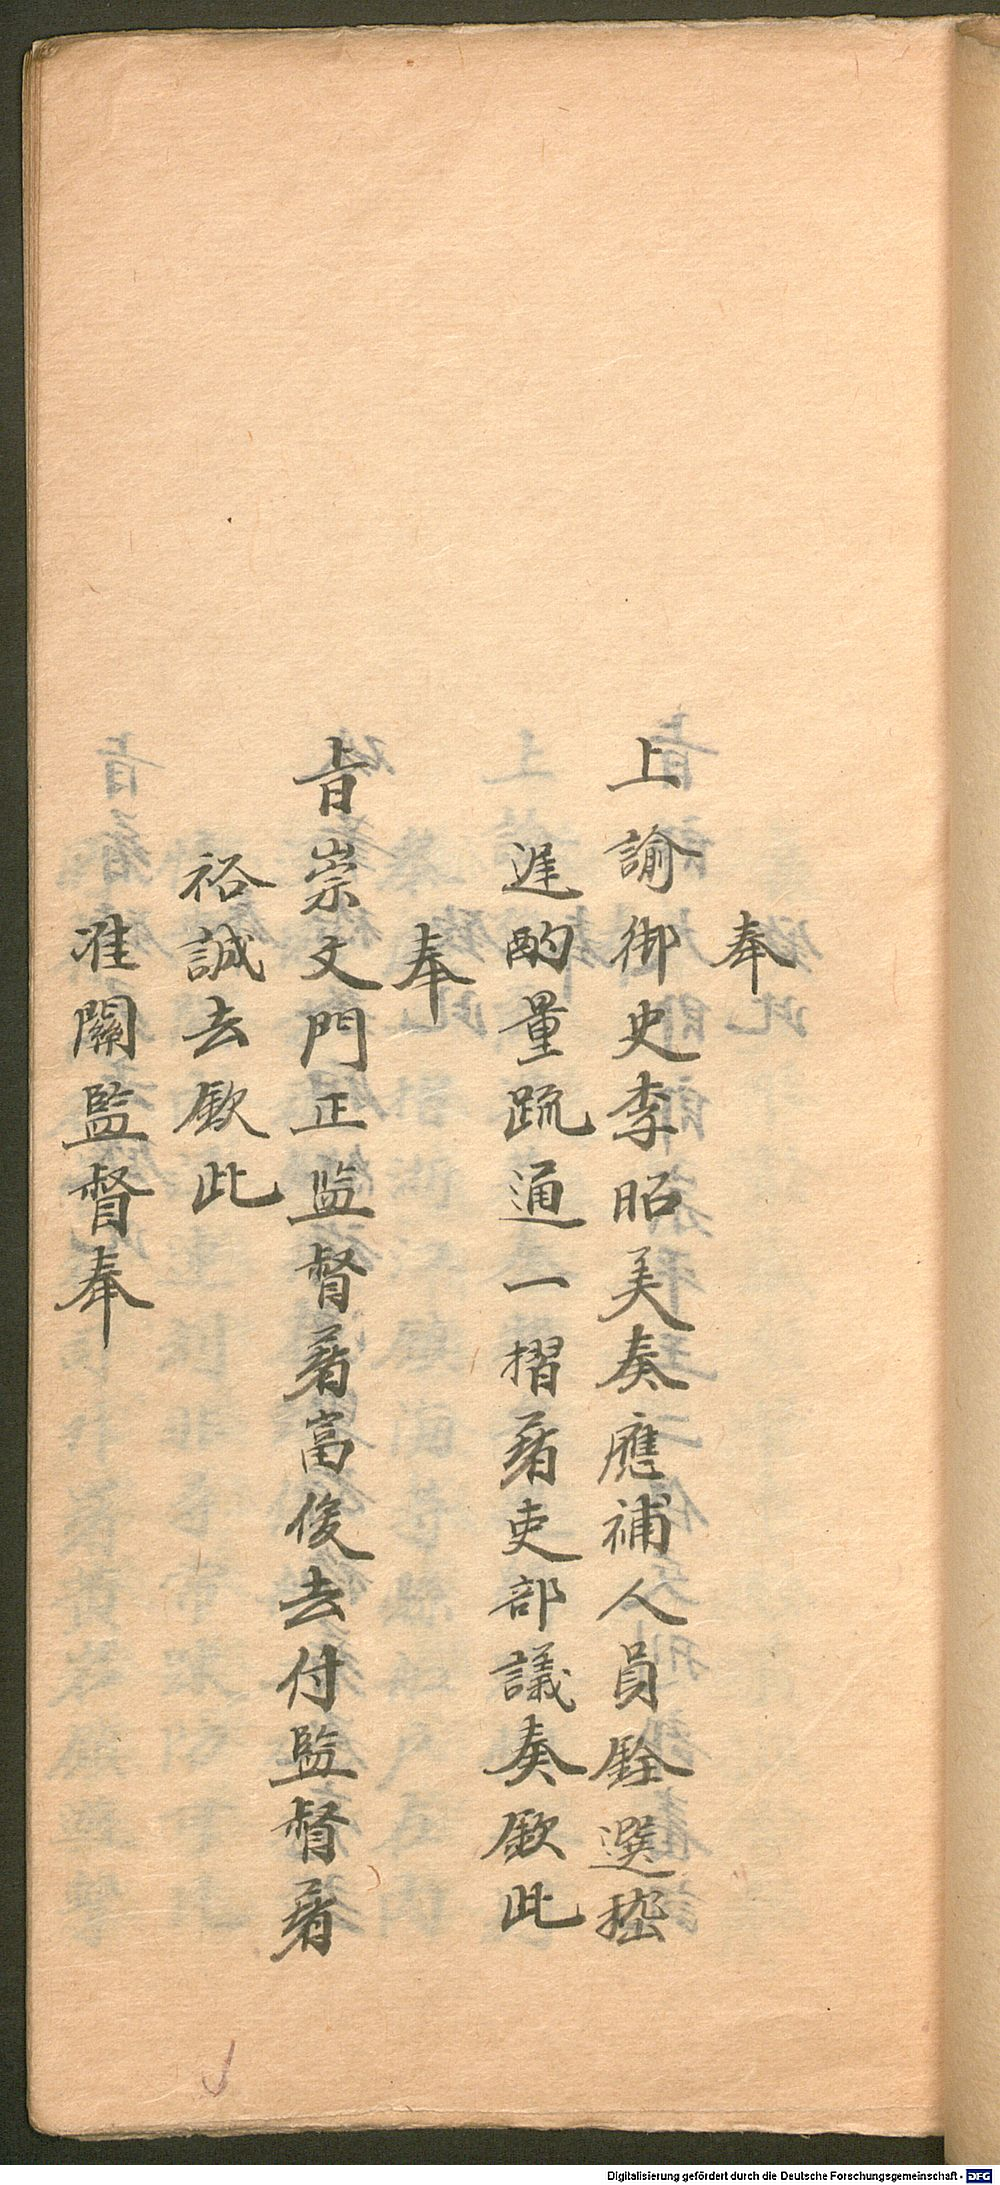 奉
上諭御史李昭美奏應補人員銓選
遲酌量疏通一摺着吏部議奏欽此
奉
旨崇文門正监督着富俊去付監督着
裕誠去欽此
准關監督奉
Digitalisierung gefördert durch die Deutsche Forschungsgemeinschaft - DFG